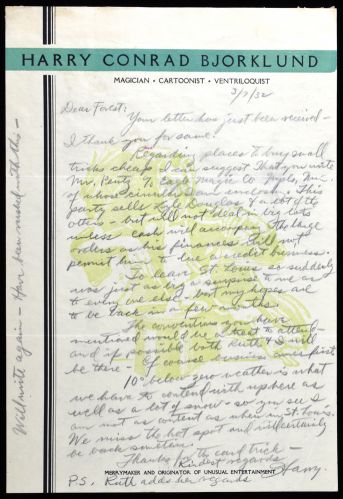 HARRY CONRAD BJORKLUND
MAGICIAN • CARTOONIST • VENTRILOQUIST
3/7/32
Dear Forest:
Your letter has just been received –
I thank you for same.
Regarding places to buy small
tricks cheap I can suggest that you write
Mr. Rentz % Eagle Magic Co. Mpls, Minn.
of whose circular I am enclosing. This
party sells Lyle Douglas & a lot of the
others – but will not deal in big lots
unless cash will accompany the large
orders as his finances will not
permit him to do a credit business.
To leave St. Louis so suddenly
was just as big a surprise to me as
to every one else – but my hopes are
to be back in a few months.
The conventions you have
mentioned would be a treat to attend –
and if possible both Ruth & I will
be there – Of course business comes first.
10° below zero weather is what
we have to contend with up here as
well as a lot of snow – so you see I
am not as content as when in St. Louis.
We miss the hot spot and will certainly
be back sometime.
Thanks for the card trick –
Kindest regards
Harry.
MERRYMAKER AND ORIGINATOR OF UNUSUAL ENTERTAINMENT
P.S. Ruth adds her regards
Will write again – Have been rushed with this –